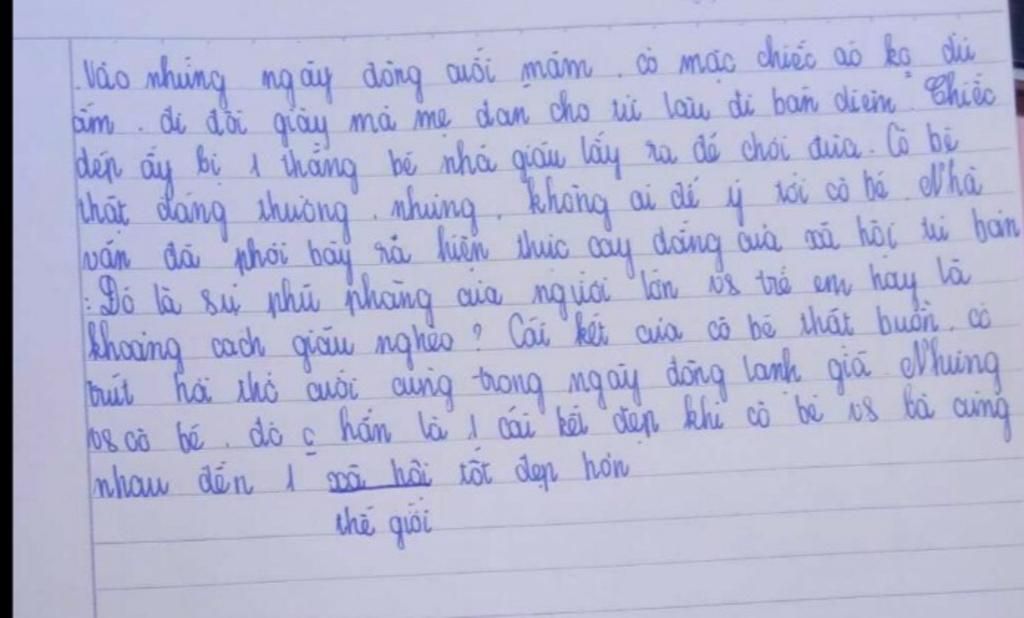 Vào những ngày đông cuối năm, cô mặc chiếc áo ko đủ
ấm, đi đôi giày mà mẹ đan cho từ lâu đi bán diêm. Chiếc
dép ấy bị 1 thằng bé nhà giàu lấy ra để chơi đùa. Cô bé
thật đáng thương, nhưng, không ai để ý tới cô bé. Nhà
văn đã phơi bày rả hiện thực cay đắng của xã hội tư bản
: Đó là sự phũ phàng của người lớn vs trẻ em hay là
khoảng cách giàu nghèo? Cái kết của cô bé thật buồn, cô
trút hơi thở cuối cùng trong ngày đông lạnh giá. Nhưng
vs cô bé, đó c hẳn là 1 cái kết đẹp khi cô bé vs bà cùng
nhau đến 1 xã hội tốt đẹp hơn
thế giới